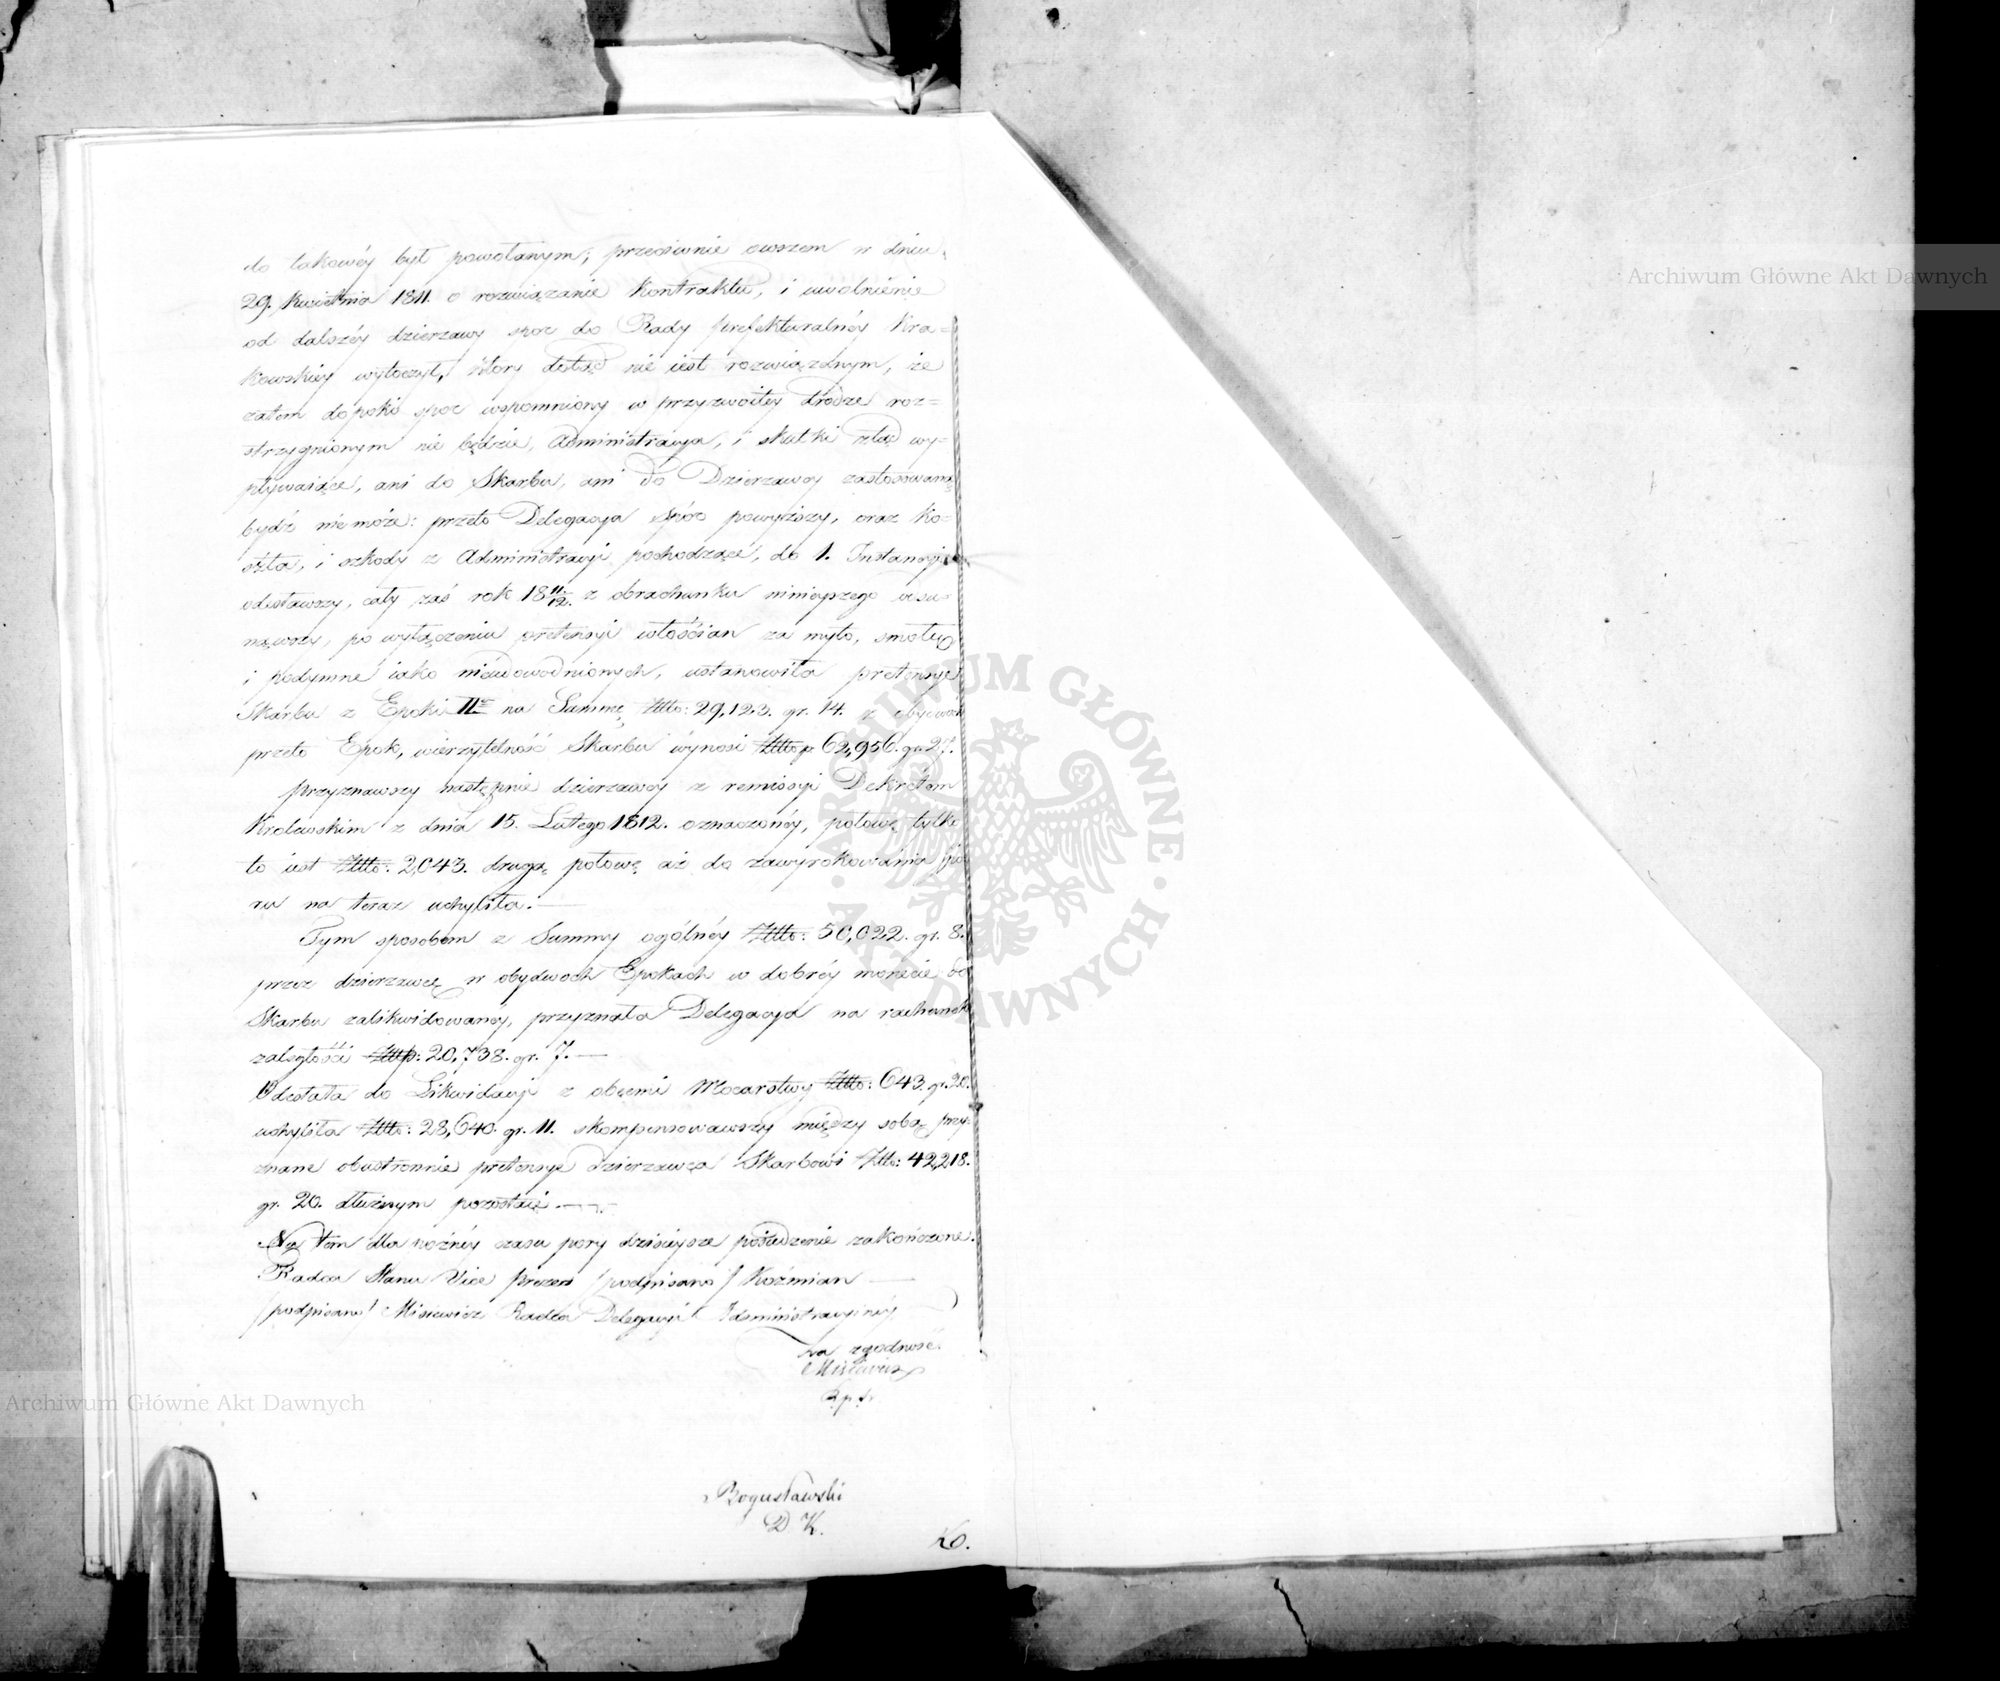 do takowéy był powołanym; przeciwnie owszem w dniu
29. Kwietnia 1811. o rozwiązanie Kontraktu, i uwolnienie
od dalszéy dzierzawy spor do Rady prefekturalnéy Kra=
kowskiey wytoczył, ktory dotąd nie iest rozwiązanym, że
zatem dopoki spor wspomniony w przyzwoitey drodze roz=
strzygnionym nie będzie, Administracya, i skutki ztąd wy=
pływaiące, ani do Skarbu, ani do Dzierzawcy zastosowane
bydź nie może: przeto Delegacya spór powyższy, oraz ko=
szta, i szkody z Administracyi pochodzące, do 1. Instancyi
odesławszy, cały zaś rok 18 11/12. z obrachunku ninieyszego usu=
nąwszy, po wyłączeniu pretensyi włościan za myto, smołę
i podymne iako nieudowodnionych, ustanowiła pretensye
Skarbu z Epoki II na Summę Złło: 29,123. gr. 14. z obydwóch
przeto Epok, wierzytelność Skarbu wynosi Złło p 62,956. gr 27.
przyznawszy następnie dzierzawcy z remissyi Dekretem
Krolewskim z dnia 15. Lutego 1812. oznaczonéy, połowę tylko
to iest Złło: 2,043. drugą połowę aż do zawyrokowania spo
ru na teraz uchyliła.—
Tym sposobem z Summy ogólnéy Złło: 50,022. gr. 8.
przez dzierzawcę w obydwoch Epokach w dobréy monecie do
Skarbu zalikwidowanéy, przyznała Delegacya na rachunek
zaległości Złłp: 20,738. gr. 7.—
Odesłała do Likwidacyi z obcemi Mocarstwy Złło: 643. gr. 20.
uchyliła Złło: 28,640. gr. 11. skompensowawszy między sobą przy=
znane obustronnie pretensye dzierzawca Skarbowi Złło: 42,218.
gr. 20. dłużnym pozostaie.—
Na tem dla późnéy czasu pory dzisieysze posiedzenie zakończone.
Radca Stanu Vice Prezes /podpisano/ Koźmian —
/podpisano/ Misiewicz Radca Delegacyi Administracyinéy
Za zgodność
Misiewicz
Bogusławski
D K.
Ko.
Archiwum Główne Akt Dawnych
Archiwum Główne Akt Dawnych
· ARCHIWUM GŁÓWNE · AKT DAWNYCH